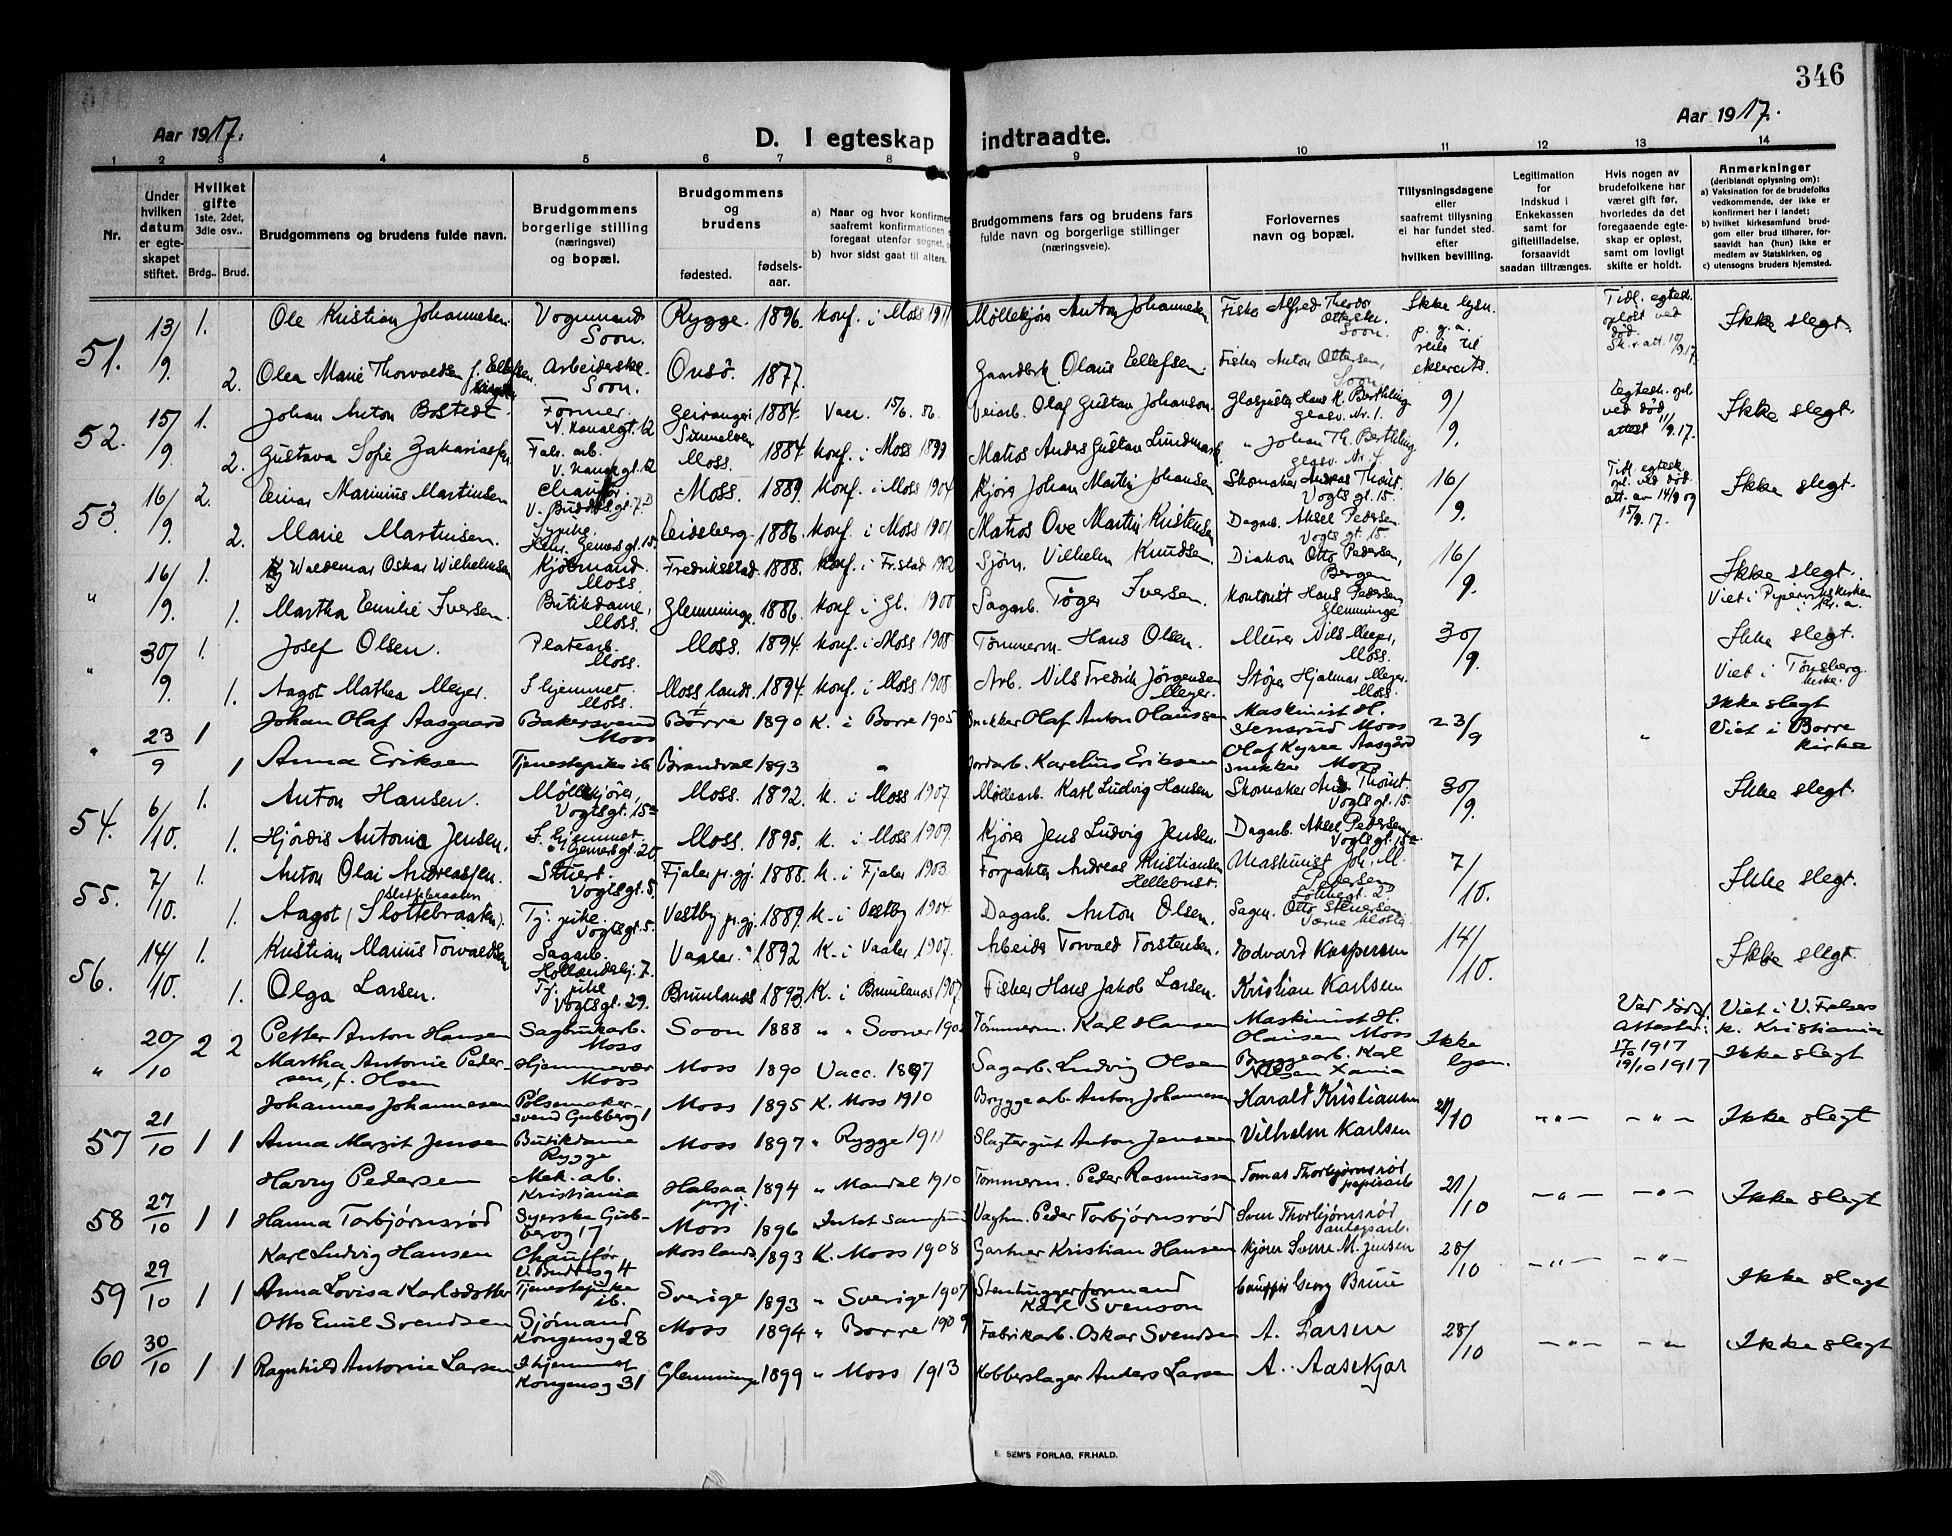 346
Aar 1917.
Aar 1917.
D. I egteskap indtraadte.
1 2 3 4 5 6 7 8 9 10 11 12 13 14
Nr.
Under hvilken datum er egteskapet stiftet.
Hvilket gifte 1ste, 2det, 3die osv..
Brdg.. Brud.
Brudgommens og brudens fulde navn.
Brudgommens borgerlige stilling (næringsvei) og bopæl.
Brudgommens og brudens
fødested. fødsels-aar.
a) Naar og hvor konfirmer
saafremt konfirmationen
foregaat utenfor sognet,
b) hvor sidst gaat til alters.
Brudgommens fars og brudens fars fulde navn og borgerlige stillinger (næringsveie).
Forlovernes navn og bopæl.
Tillysningsdagene eller saafremt tillysning ei har fundet sted. efter hvilken bevilling.
Legitimation for Indskud i Enkekassen samt for giftetilladelse, forsaavidt saadan tiltrænges.
Hvis nogen av brudefolkene har været gift før, hvorledes da det foregaaende egteskap er opløst, samt om lovligt skifte er holdt.
Anmerkninger (deriblandt oplysning om): a) Vaksination for de brudefolks vedkommende, der ikke er konfirmert her i landet; b) hvilket kirkesamfund brudgom eller brud tilhører, forsaavidt han (hun) ikke er medlem av Statskirken, og c) utensogns bruders hjemsted.
51. 13/9. 1. Ole Kristian Johannesen. Vognmand Soon. Rygge. 1896. Konf. i Moss 1911 Møllekjører Anton Johannesen. Fisker Alfred Theodor Ottersen. Soon. Ikke lysn. p. g. a. reise til eksercits. Tidl. egtesk. opløst ved død. Sk.r. att. 10/9.17. Ikke slegt.
2. Olea Marie Thorvaldsen f. Ellefsen Arbeiderske. Soon. Onsø. 1877. Gaardbrk. Olaus Ellefsen. Fisker Anton Ottersen, Soon.
52. 15/9. 1. Johan Anton Bostedt. Former. V. Kanalgt. 12 Geiranger 1884. Vacc. 15/6. 86. Veiarb. Olaf Gustav Johanson. Glaspuster Hans K. Berthling glasv. Nr. 1. 9/9. Egtesk. opl. ved død attest 11/9.17. Ikke slegt.
2. Gustava Sofie Zakariassen. Fabr. arb. V. Kanalgt. 12 Moss. 1884. Konf. i Moss 1899 Matros Anders Gustav Lundmark. " Johan Th. Berthling glasv. Nr. 7
53. 16/9. 2. Einar Marinius Martinsen Chauffør. V. Buddesgt. 7. Moss. 1889. Konf. i Moss 1904 Kjører Johan Martin Johansen Skomaker Andreas Thorst. Vogts gt. 15. 16/9. Tidl. egtesk. opl. ved død. att. av 14/9 og 15/9.17. Ikke slegt.
2. Marie Martinsen. Sypike. Henr. Gerners gt. 15. Eidsberg. 1886. Konf. i Moss 1901 Matros Ove Martin Kristensen Dagarb. Aksel Pedersen Vogts gt. 15.
" 16/9. 1. Waldemar Oskar Wilhelmsen Kjøbmand. Moss. Fredriksstad. 1888. Konf. i Fr.stad 1902 Sjøm. Vilhelm Knudsen. Diakon Otto Pedersen, Bergen 16/9. Ikke slegt. Viet i Piperviks kirken i Kr.a.
1. Martha Emilie Iversen. Butikdame, Moss. Glemminge. 1886. Konf. i Gl. 1900 Sagarb. Tøger Iversen. Kontorist Hans Pedersen Glemminge
" 30/9. 1. Josef Olsen. Platearb. Moss. Moss. 1894. Konf. i Moss 1908. Tømmerm. Hans Olsen. Murer Nils Meyer, Moss. 30/9. Ikke slegt. Viet i Tønsberg kirke.
1. Aagot Mathea Meyer. I hjemmet. Moss. Moss lands. 1894. Konf. i Moss 1908 Arb. Nils Fredrik Jørgensen Meyer. Støper Hjalmar Meyer. Moss.
" 23/9 1 Johan Olaf Aasgaard Bakersvend Moss Borre 1890 K. i Borre 1905 Snekker Olaf Anton Olaussen Maskinist H. Stensrud Moss 23/9 " Ikke slegt Viet i Borre kirke
1 Anna Eriksen Tjenestepike ib Brandval 1893 " Jordarb. Karelius Eriksen Olaf Kyrre Aasgård snekker Moss
54. 6/10. 1. Anton Hansen. Møllekjører, Vogtsgt. 15a Moss. 1892. K. i Moss 1907. Møllearb. Karl Ludvig Hansen Skomaker And. Thorst. Vogts gt. 15. 30/9. Ikke slegt.
1. Hjørdis Antonie Jensen. I hjemmet. Gernersgt. 20. Moss. 1895. K. i Moss 1909. Kjører Jens Ludvig Jensen. Dagarb. Aksel Pedersen, Vogts gt. 15a
55. 7/10. 1. Anton Olai Andreassen. Stuert. Vogtsgt. 5. Fjaler pr.gj. 1888. K. i Fjaler 1903. Forpakter Andreas Kristiansen Hellebust. Maskinist Joh. M. Pettersen 7/10. Ikke slegt.
1. Aagot (Slottebraaten). Tj. pike. Vogtsgt. 5. Vestby pr.gj. 1889. K. i Vestby 1904. Dagarb. Anton Olsen. Sagm. Otto Værne kloster
56. 14/10. 1. Kristian Marius Torvaldsen Sagarb. 7. Vaaler. 1892 K. i Vaaler 1907. Arbeider Torvald Torstensen. Edvard Kaspersen 14/10. Ikke slegt.
1. Olga Larsen. Tj. pike Vogtsgt. 29. Brunlanes 1893. K. i Brunlanes 1907. Fisker Hans Jakob Larsen. Kristian Karlsen
" 20/10 2 2 Petter Anton Hansen Sagbrukarb. Moss Soon 1888 " " Sooner 190 Tømmerm. Karl Hansen Maskinist H. Olausen Moss Ikke lysn. Ved død. Attester: 17/10 1917 19/10 1917 Viet i V. Frelsers k. Kristiania Ikke slegt
Martha Antonie Pedersen, f. Olsen Hjemmevær Moss Moss 1890 Vacc. 1897 Sagarb. Ludvig Olsen Bryggearb. Karl Nilsen Xania
57 21/10 1 1 Johannes Johannesen Pølsemakersvend Gubberog 1 Moss 1895 K. Moss 1910 Bryggearb. Anton Johannesen Harald Kristiansen 21/10 — " — — " — Ikke slegt
Anna Margit Jensen Butikdame Rygge Moss 1897 " Rygge 1911 Slagtergut Anton Jensen Vilhelm Karlsen
58 27/10 1 1 Harry Pedersen Mek. arb. Kristiania Halsaa prgj. 1894 " Mandal 1910 Tømmerm. Peder Rasmussen Tomas Thorbjørnsrød papirarb 21/10 — " — — " — Ikke slegt
Hanna Torbjørnsrød Syerske Gubberog 17 Moss 1896 Intet samfund Vagtm. Peder Torbjørnsrød Sven Thorbjørnsrød anlægsarb.
59 29/10 1 1 Karl Ludvig Hansen Chauffør V. Buddesg 4 Moss lands 1893 K. Moss 1908 Gartner Kristian Hansen Kjører Sverre M. Jensen 28/10 — " — — " — Ikke slegt
Anna Lovisa Karlsdotter Tjenestepike ib. Sverige 1893 " Sverige 1907 Stenhuggerformand Karl Svenson Georg Bruue
60 30/10 1 1 Otto Emil Svendsen Sjømand Kongensg 28 Moss 1894 " Borre 1909 Fabrikarb. Oskar Svendsen A. Larsen 28/10 — " — — " Ikke slegt
Ragnhild Antonie Larsen I hjemmet Kongensg 31 Glemminge 1899 " Moss 1913 Kobberslager Anders Larsen A. Aasekjær
E. SEM'S FORLAG, FR.HALD.